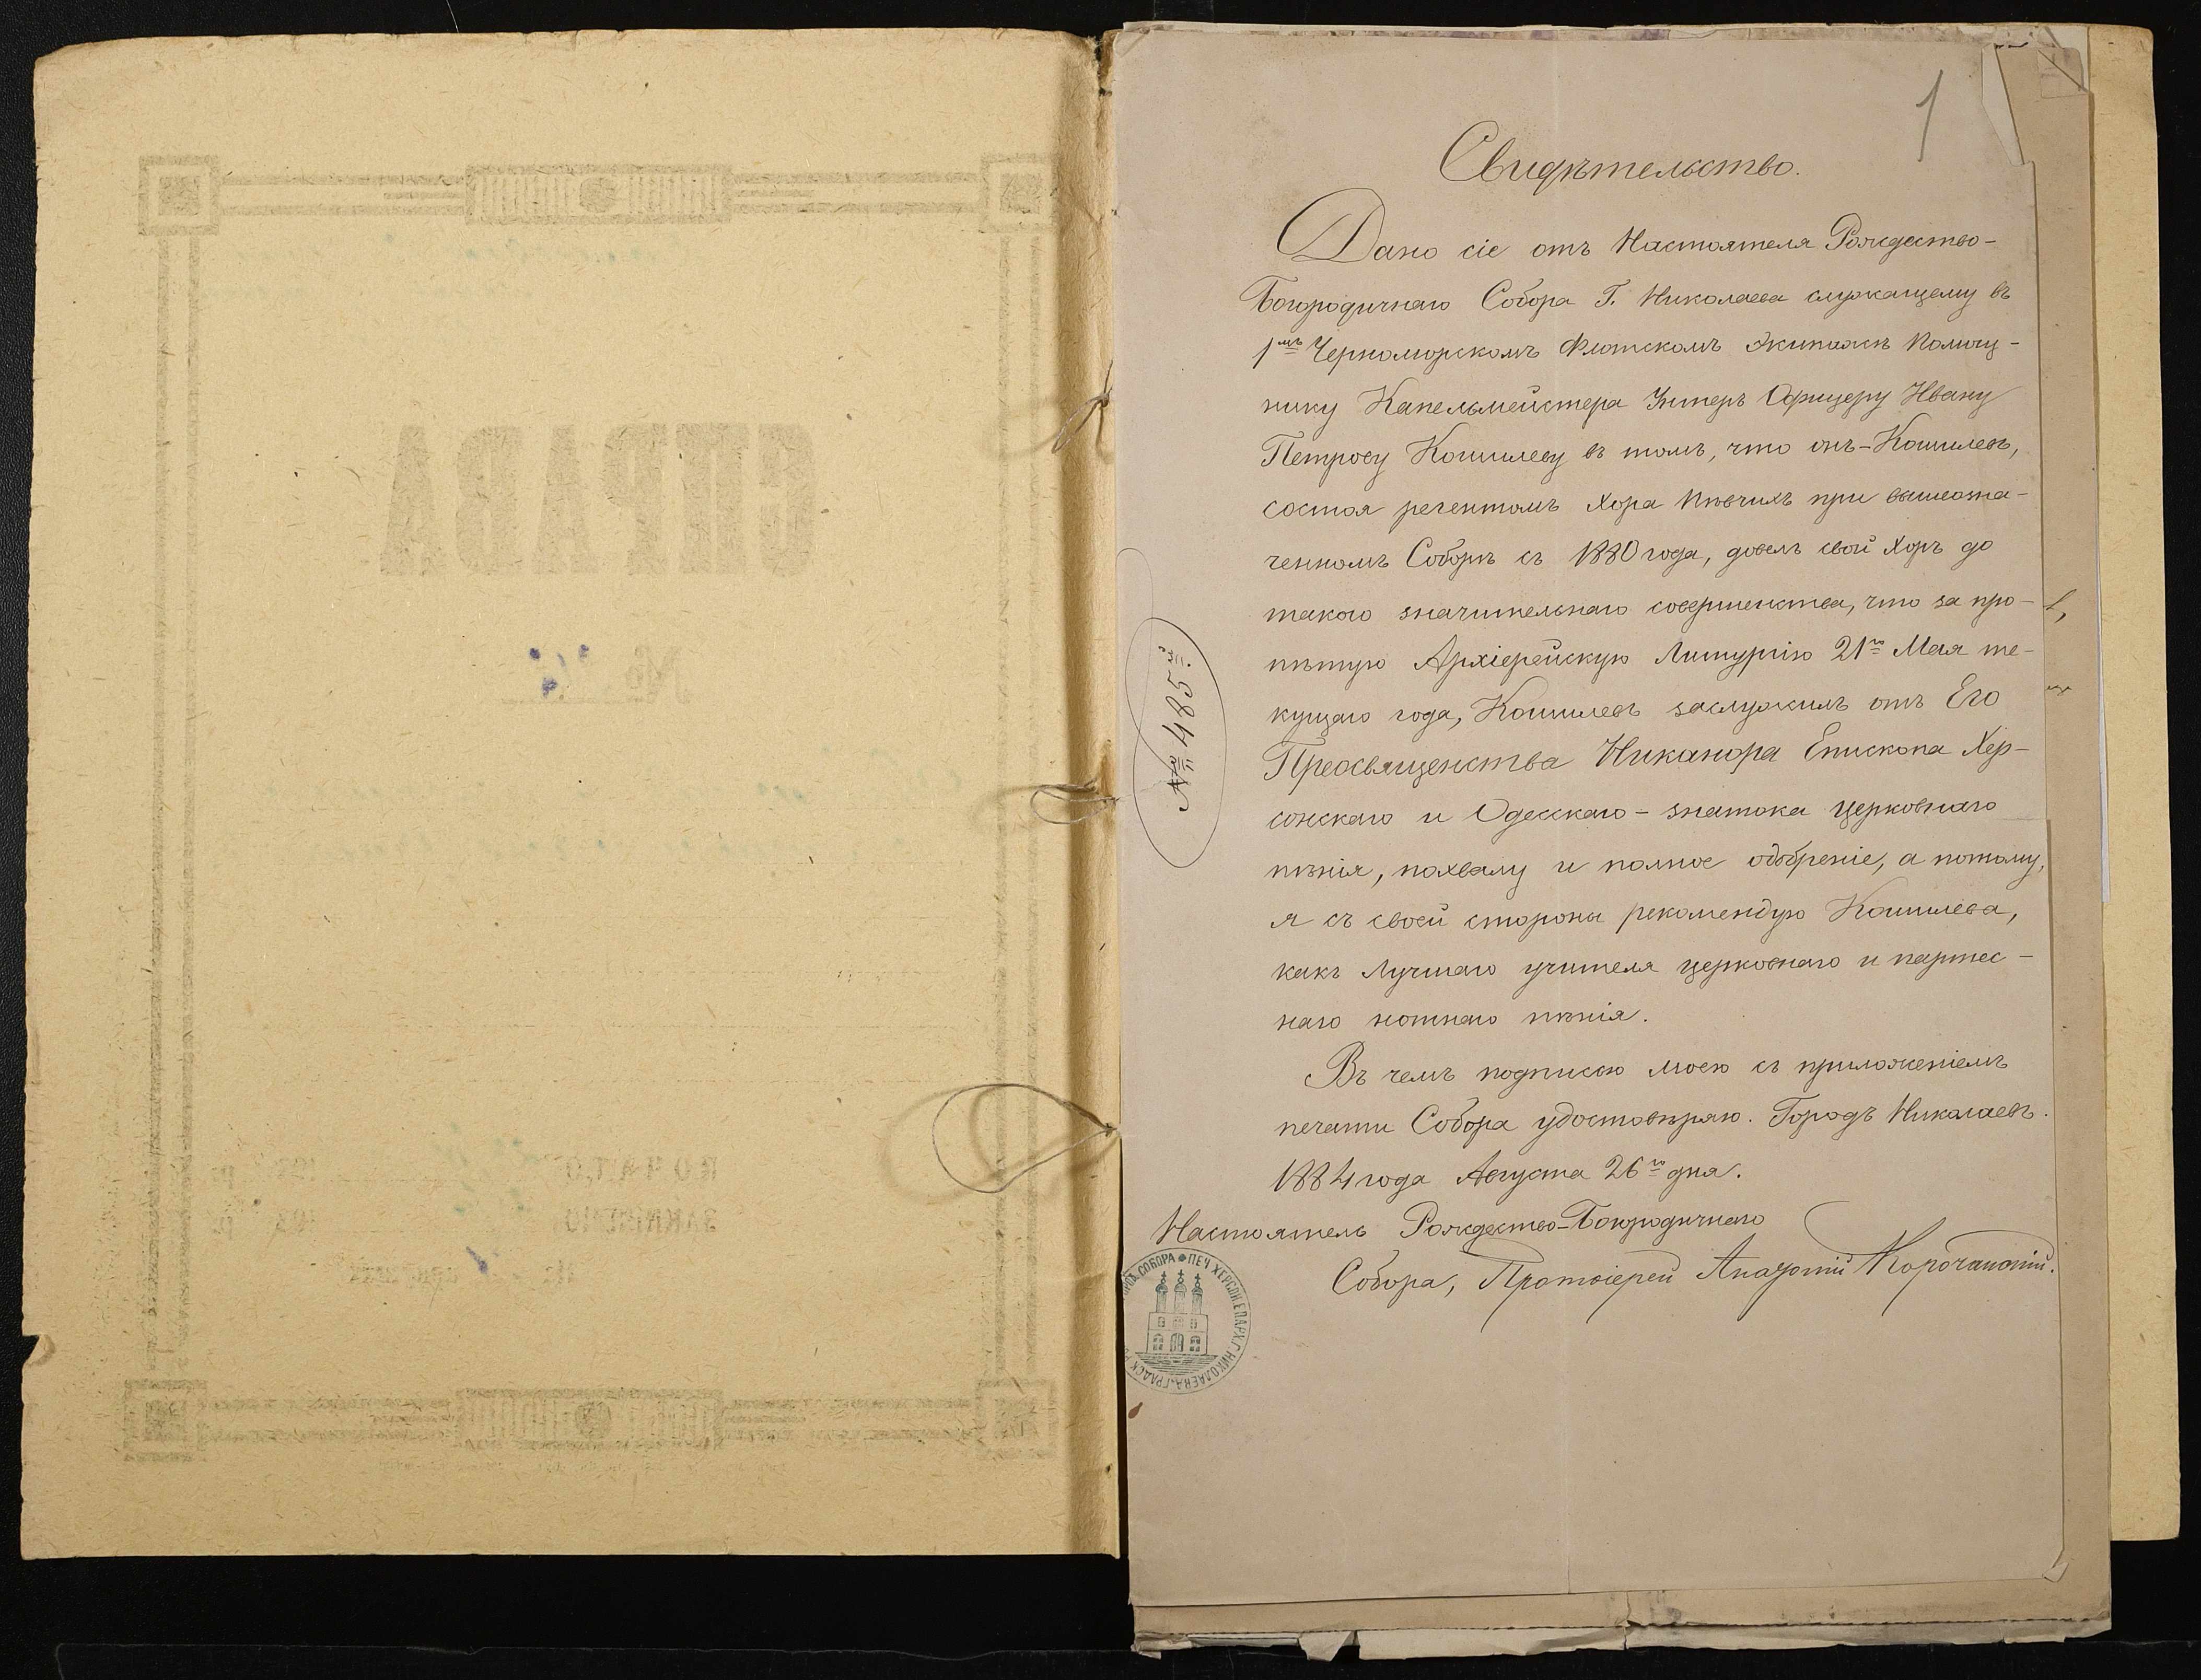 1
Свидѣтельство.
Дано сіе отъ Настоятеля Рождество-
Богородичнаго Собора Г. Николаева служащему въ
1мъ Черноморскомъ Флотскомъ Экипажѣ Помощ-
нику Капельмейстера Унтеръ Офицеру Ивану
Петрову Кошилеву въ томъ, что онъ-Кошилевъ,
состоя регентомъ Хора Пѣвчихъ при вышеозна-
ченномъ Соборѣ съ 1880 года, довелъ свой Хоръ до
такого значительнаго совершенства, что за про-
пѣтую Архіерейскую Литургію 21го Мая те-
кущаго года, Кошилевъ заслужилъ отъ Его
Преосвященства Никанора Епископа Хер-
сонскаго и Одесскаго - знатока церковнаго
пѣнія, похвалу и полное одобреніе, а потому,
я съ своей стороны рекомендую Кошилева,
какъ Лучшаго учителя церковнаго и партес-
наго нотнаго пѣнія.
Въ чемъ подписью моею съ приложеніемъ
печати Собора удостовѣряю. Городъ Николаевъ.
1884 года Августа 26го дня.
Настоятель Рождество-Богородичнаго
Собора, Протоіерей
№ 485й.
СОБОРА ПЕЧ ХЕРСОН ЕПАРХ Г НИКОЛАЕВА ГРАДСК
СПРАВА
№
ПОЧАТО
ЗАКІНЧЕНО